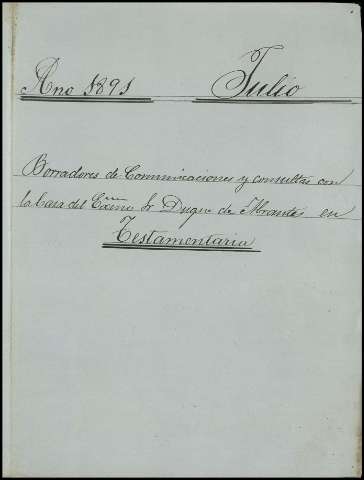 Año 1891 Julio
Borradores de Comunicaciones y consultas con
la Casa del Excmo Sr Duque de Abrantes en
Testamentaria